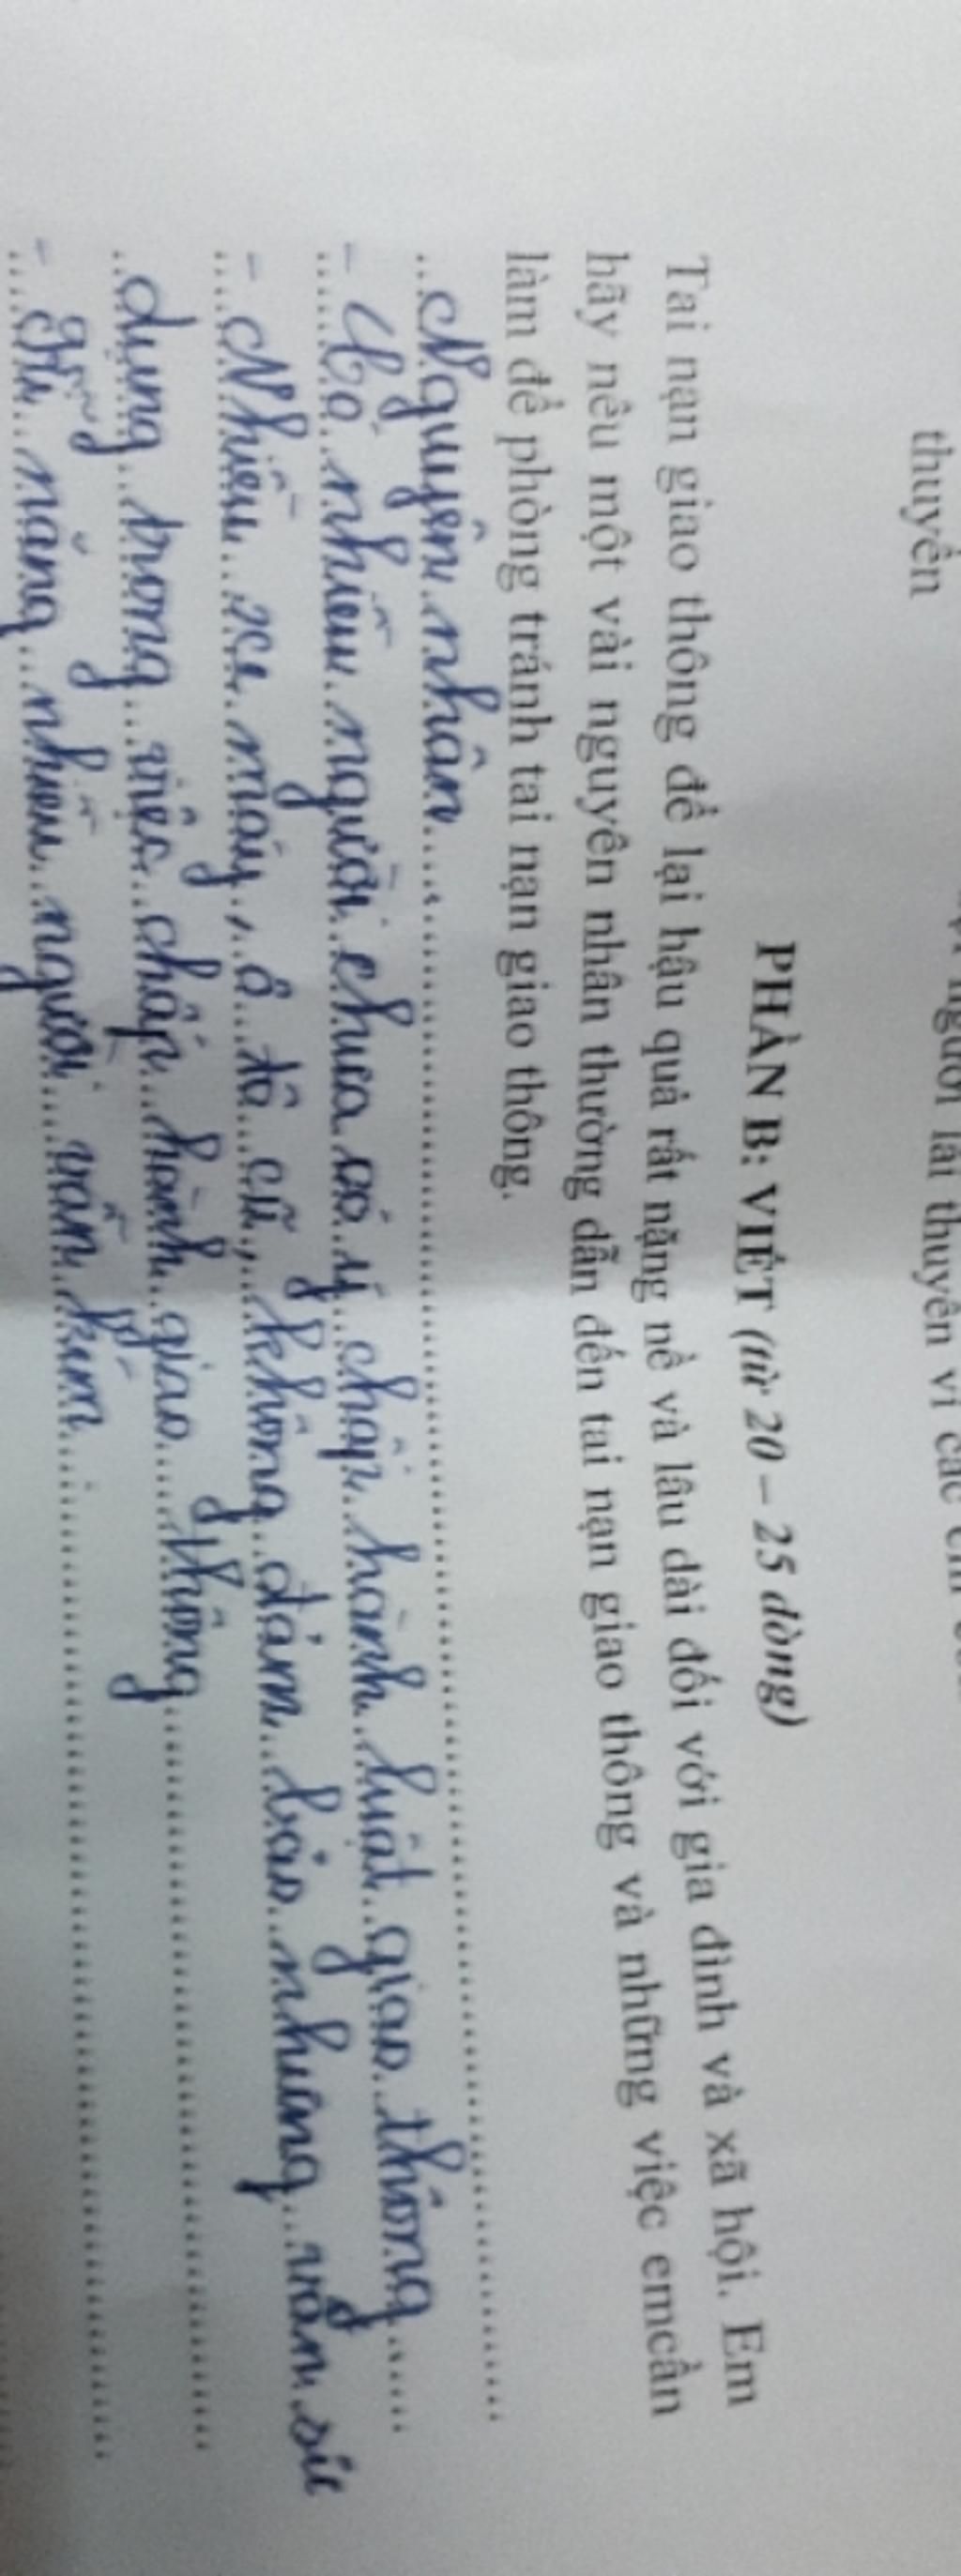 người lái thuyền vì các em
thuyền
PHẦN B: VIẾT (từ 20 – 25 dòng)
Tai nạn giao thông để lại hậu quả rất nặng nề và lâu dài đối với gia đình và xã hội. Em
hãy nêu một vài nguyên nhân thường dẫn đến tai nạn giao thông và những việc emcần
làm để phòng tránh tai nạn giao thông.
Nguyên nhân
- Có nhiều người chưa có ý chấp hành luật giao thông
- Nhiều xe máy, ô tô cũ, không đảm bảo nhưng vẫn sử
dụng trong việc chấp hành giao thông
- năng nhiều người vẫn kém